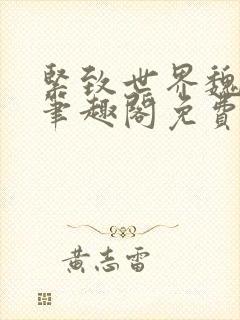 緊致世界魏
筆趣閣免費
黃志雷